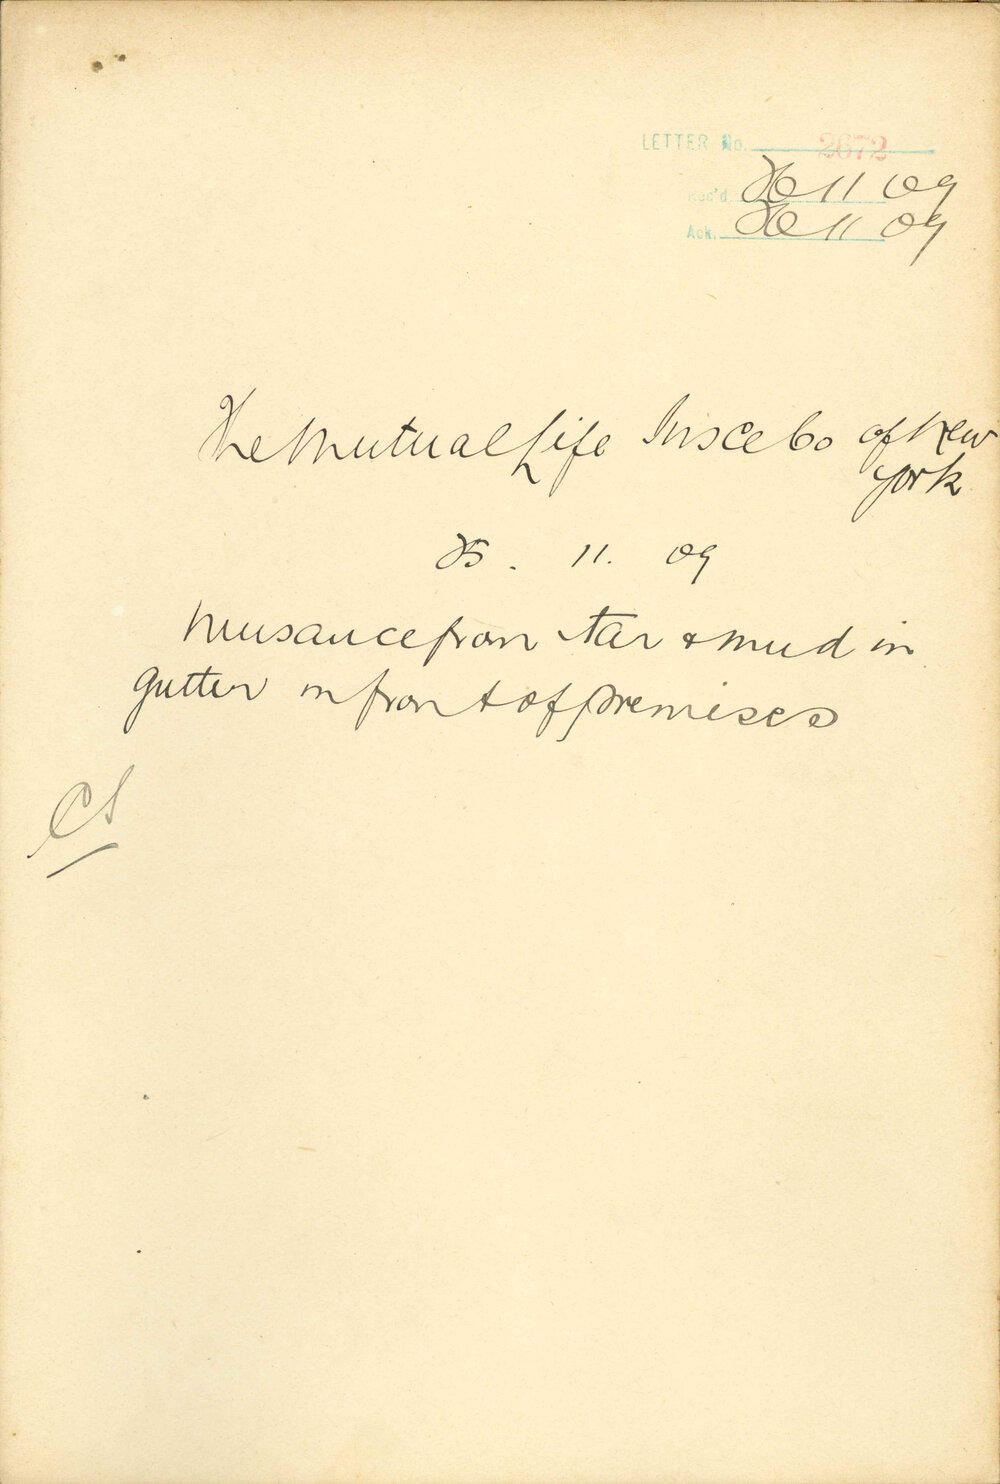 LETTER No. 2672
Rec'd 26 11 09
Ack. 26 11 09
The Mutual Life Insce Co of New
York
25. 11. 09
Nuisance from tar & mud in
gutter in front of premises
CS